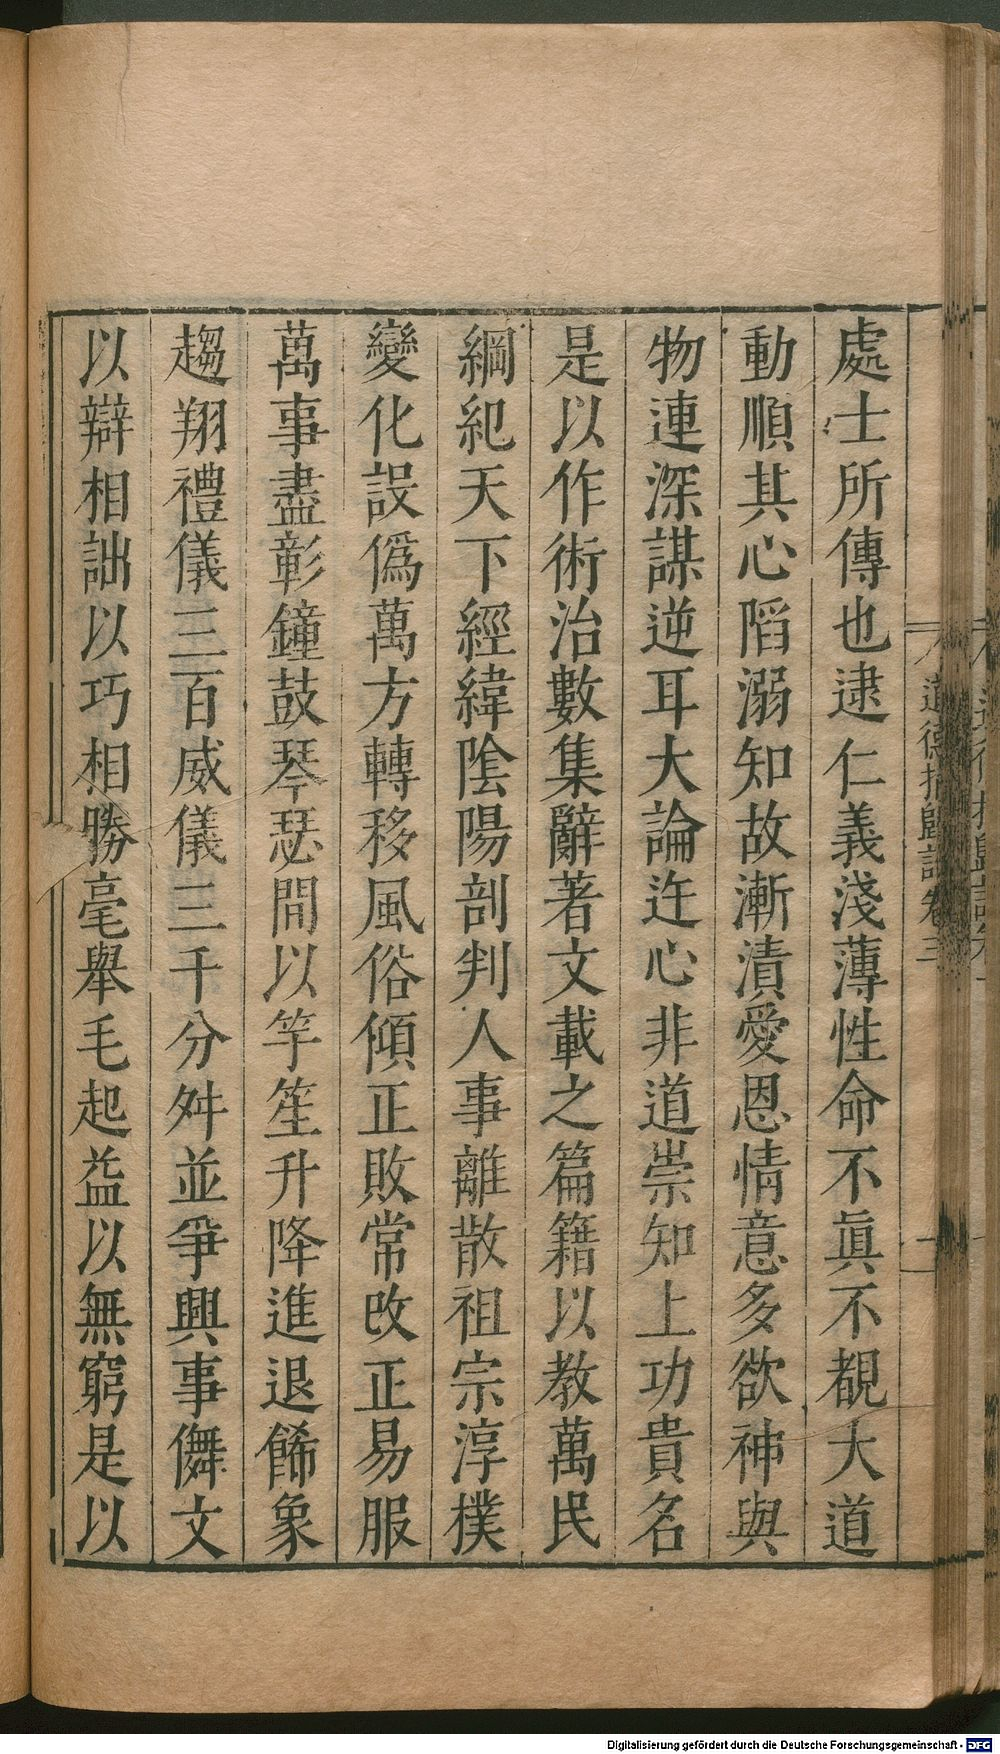 處士所傳也逮仁義淺薄性命不眞不覩大道
動順其心陷溺知故漸漬愛恩情意多欲神與
物連深謀逆耳大論迕心非道崇知上功貴名
是以作術治數集辭著文載之篇籍以教萬民
綱紀天下經緯陰陽剖判人事離散祖宗淳樸
變化設僞萬方轉移風俗傾正敗常改正易服
萬事盡彰鐘鼓琴瑟間以竽笙升降進退飾象
趨翔禮儀三百威儀三千分舛並爭興事儛文
以辯相詘以巧相勝毫舉毛起益以無窮是以
道德指歸論卷三
一
Digitalisierung gefördert durch die Deutsche Forschungsgemeinschaft - DFG